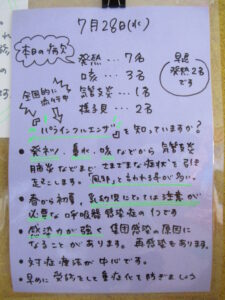 7月28日(水)
本日の病欠
発熱…7名
咳…3名
気管支炎…1名
様子見…2名
早退
発熱2名
です
全国的に
流行中
パラインフルエンザ を知っていますか?
●発熱、鼻水、咳などから気管支炎
肺炎などまでさまざまな症状を引き
起こします。「風邪」と言われる事が多い。
●春から初夏、乳幼児にとっては注意が
必要な呼吸器感染症の1つです
●感染力が強く集団感染の原因に
なることがあります。再感染もあります。
●対症療法が中心です。
●早めに受診をして重症化を防ぎましょう